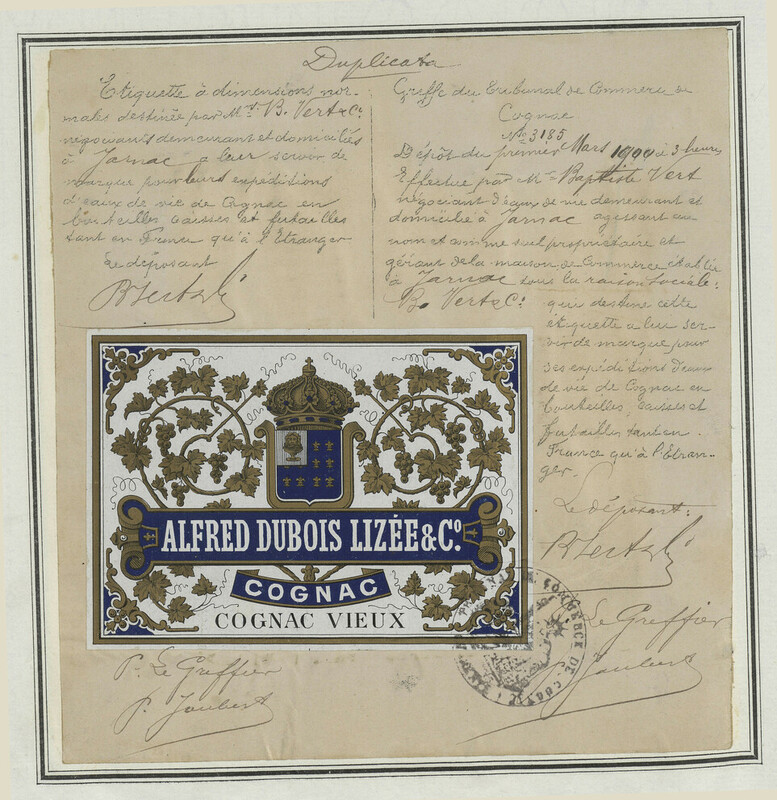 Duplicata
Etiquette à dimensions nor-
males destinée par Mr. B. Vert & Co.
négociants demeurant et domiciliés
à Jarnac a leur servir de
marque pour leurs expéditions
d'eaux de vie de Cognac en
bouteilles caisses et futailles
tant en France qu'à l'Etranger
Le déposant
B Vert & Co
Greffe du Tribunal de Commerce de
Cognac
No 3185
Dépôt du premier Mars à 3 heures
Effectué par Mr. Baptiste Vert
négociant d'eaux de vie demeurant et
domicilié à Jarnac agissant au
nom et comme seul propriétaire et
gérant de la maison de Commerce établie
à Jarnac sous la raison sociale:
B. Vert & Co.
qui destine cette
étiquette a lui ser-
vir de marque pour
ses expéditions d'eaux
de vie de Cognac en
bouteilles, caisses et
futailles tant en
France qu'à l'Etran-
ger.
Le déposant:
B Vert & Co
ALFRED DUBOIS LIZÉE & Co.
COGNAC
COGNAC VIEUX
COMMERCE DE COGNAC
P. Le Greffier
P. Joubert
Le Greffier
Joubert